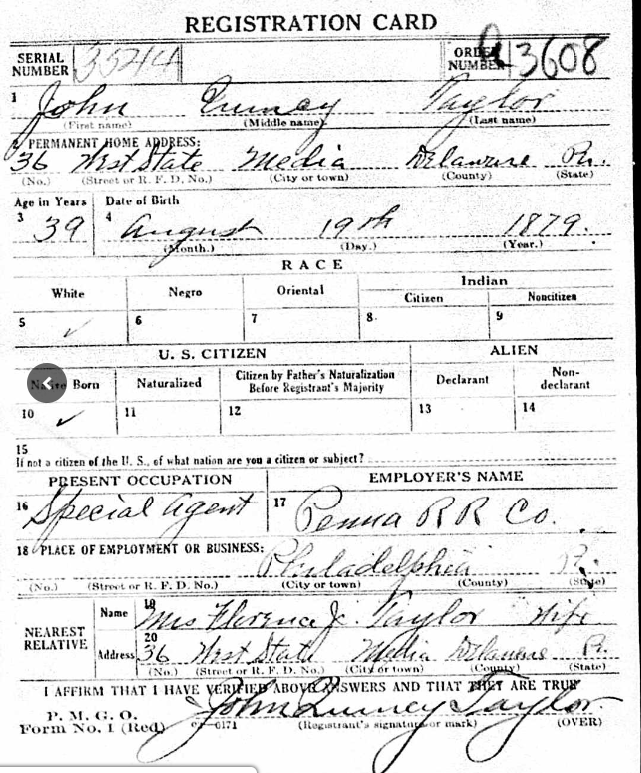 REGISTRATION CARD
SERIAL NUMBER 3544 ORDER NUMBER A 3608
1 John Quincy Taylor
(First name) (Middle name) (Last name)
2 PERMANENT HOME ADDRESS:
36 West State Media Delaware Pa.
(No.) (Street or R. F. D. No.) (City or town) (County) (State)
Age in Years Date of Birth
3 39 4 August 19th 1879.
(Month.) (Day.) (Year.)
RACE
White Negro Oriental Indian
Citizen Noncitizen
5 ✓ 6 7 8 9
U. S. CITIZEN ALIEN
Native Born Naturalized Citizen by Father's Naturalization Before Registrant's Majority Declarant Non-declarant
10 ✓ 11 12 13 14
15
If not a citizen of the U. S., of what nation are you a citizen or subject?
PRESENT OCCUPATION EMPLOYER'S NAME
16 Special Agent 17 Penna R R Co.
18 PLACE OF EMPLOYMENT OR BUSINESS:
Philadelphia Pa.
(No.) (Street or R. F. D. No.) (City or town) (County) (State)
NEAREST RELATIVE
Name 19 Mrs Florence J. Taylor Wife
Address 20 36 West State Media Delaware Pa.
(No.) (Street or R. F. D. No.) (City or town) (County) (State)
I AFFIRM THAT I HAVE VERIFIED ABOVE ANSWERS AND THAT THEY ARE TRUE
P. M. G. O.
Form No. 1 (Red) John Quincy Taylor
(Registrant's signature or mark) (OVER)